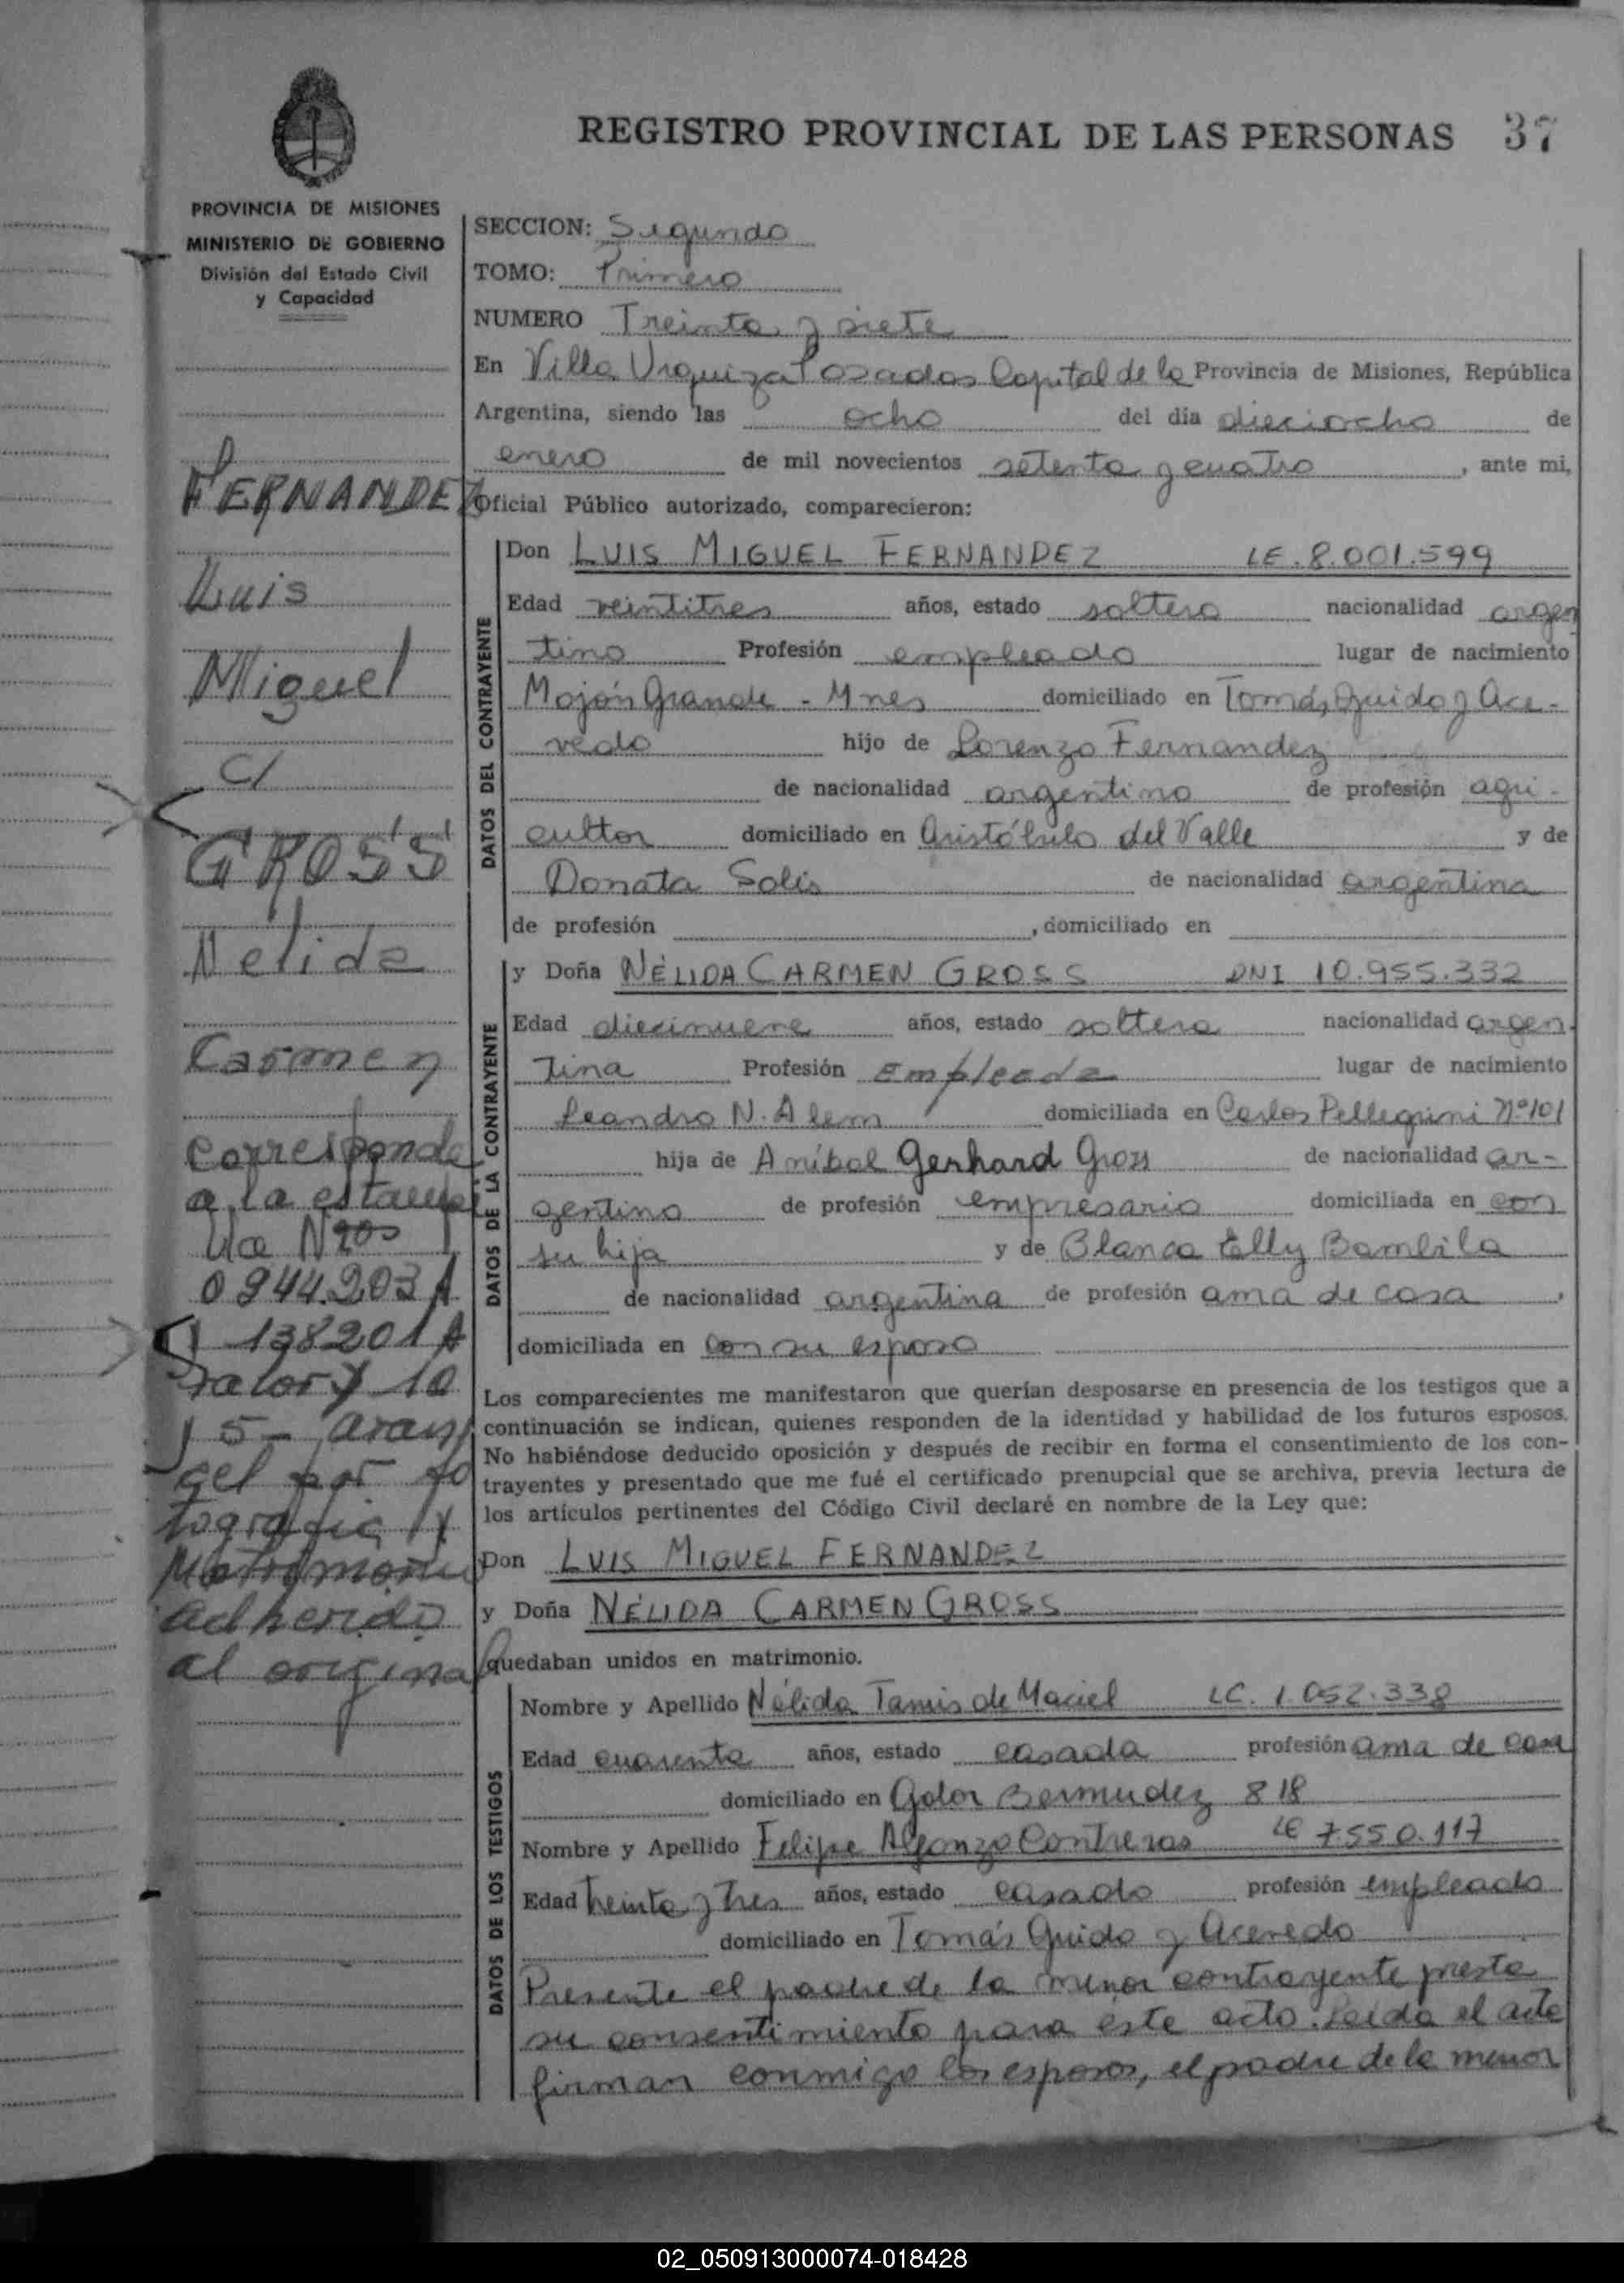 REGISTRO PROVINCIAL DE LAS PERSONAS 37
PROVINCIA DE MISIONES
MINISTERIO DE GOBIERNO
División del Estado Civil
y Capacidad
FERNANDEZ
Luis
Miguel
c/
GROSS
Nelida
Carmen
Corresponde
a la estampi
lla Nros
0944.203 A
y 138201 A
valor $ 10
y 5- aran
cel por fo
tografia y
Matrimonio
adherido
al original
SECCION: Segundo
TOMO: Primero
NUMERO Treinta y siete
En Villa Urquiza Posadas Capital de la Provincia de Misiones, República
Argentina, siendo las ocho del día dieciocho de
enero de mil novecientos setenta y cuatro, ante mi,
Oficial Público autorizado, comparecieron:
DATOS DEL CONTRAYENTE
Don LUIS MIGUEL FERNANDEZ LE. 8.001.599
Edad veintitres años, estado soltero nacionalidad argen
tino Profesión empleado lugar de nacimiento
Mojón Grande - Mnes domiciliado en Tomás Guido y Ace-
vedo hijo de Lorenzo Fernandez
de nacionalidad argentino de profesión agri-
cultor domiciliado en Aristóbulo del Valle y de
Donata Solis de nacionalidad argentina
de profesión , domiciliado en
DATOS DE LA CONTRAYENTE
y Doña NÉLIDA CARMEN GROSS DNI 10.955.332
Edad diecinueve años, estado soltera nacionalidad argen-
tina Profesión Empleada lugar de nacimiento
Leandro N. Alem domiciliada en Carlos Pellegrini Nº 101
hija de Aníbal Gerhard Gross de nacionalidad ar-
gentino de profesión empresario domiciliada en con
su hija y de Blanca Elly Bambila
de nacionalidad argentina de profesión ama de casa,
domiciliada en con su esposo
Los comparecientes me manifestaron que querían desposarse en presencia de los testigos que a
continuación se indican, quienes responden de la identidad y habilidad de los futuros esposos.
No habiéndose deducido oposición y después de recibir en forma el consentimiento de los con-
trayentes y presentado que me fué el certificado prenupcial que se archiva, previa lectura de
los artículos pertinentes del Código Civil declaré en nombre de la Ley que:
Don LUIS MIGUEL FERNANDEZ
y Doña NÉLIDA CARMEN GROSS
quedaban unidos en matrimonio.
DATOS DE LOS TESTIGOS
Nombre y Apellido Nélida Tamis de Maciel LC. 1.052.338
Edad cuarenta años, estado casada profesión ama de casa
domiciliado en Gdor Bermudez 818
Nombre y Apellido Felipe Alfonzo Contreras LE 7.550.117
Edad treinta y tres años, estado casado profesión empleado
domiciliado en Tomás Guido y Acevedo
Presente el padre de la menor contrayente presta
su consentimiento para este acto. Leída el acta
firman conmigo los esposos, el padre de la menor
02_050913000074-018428